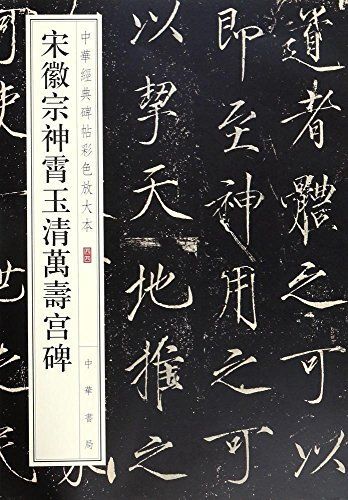 道者體之可
即至神用之可
以挈天地推之
中華經典碑帖彩色放大本
宋徽宗神霄玉清萬壽宫碑
中華書局